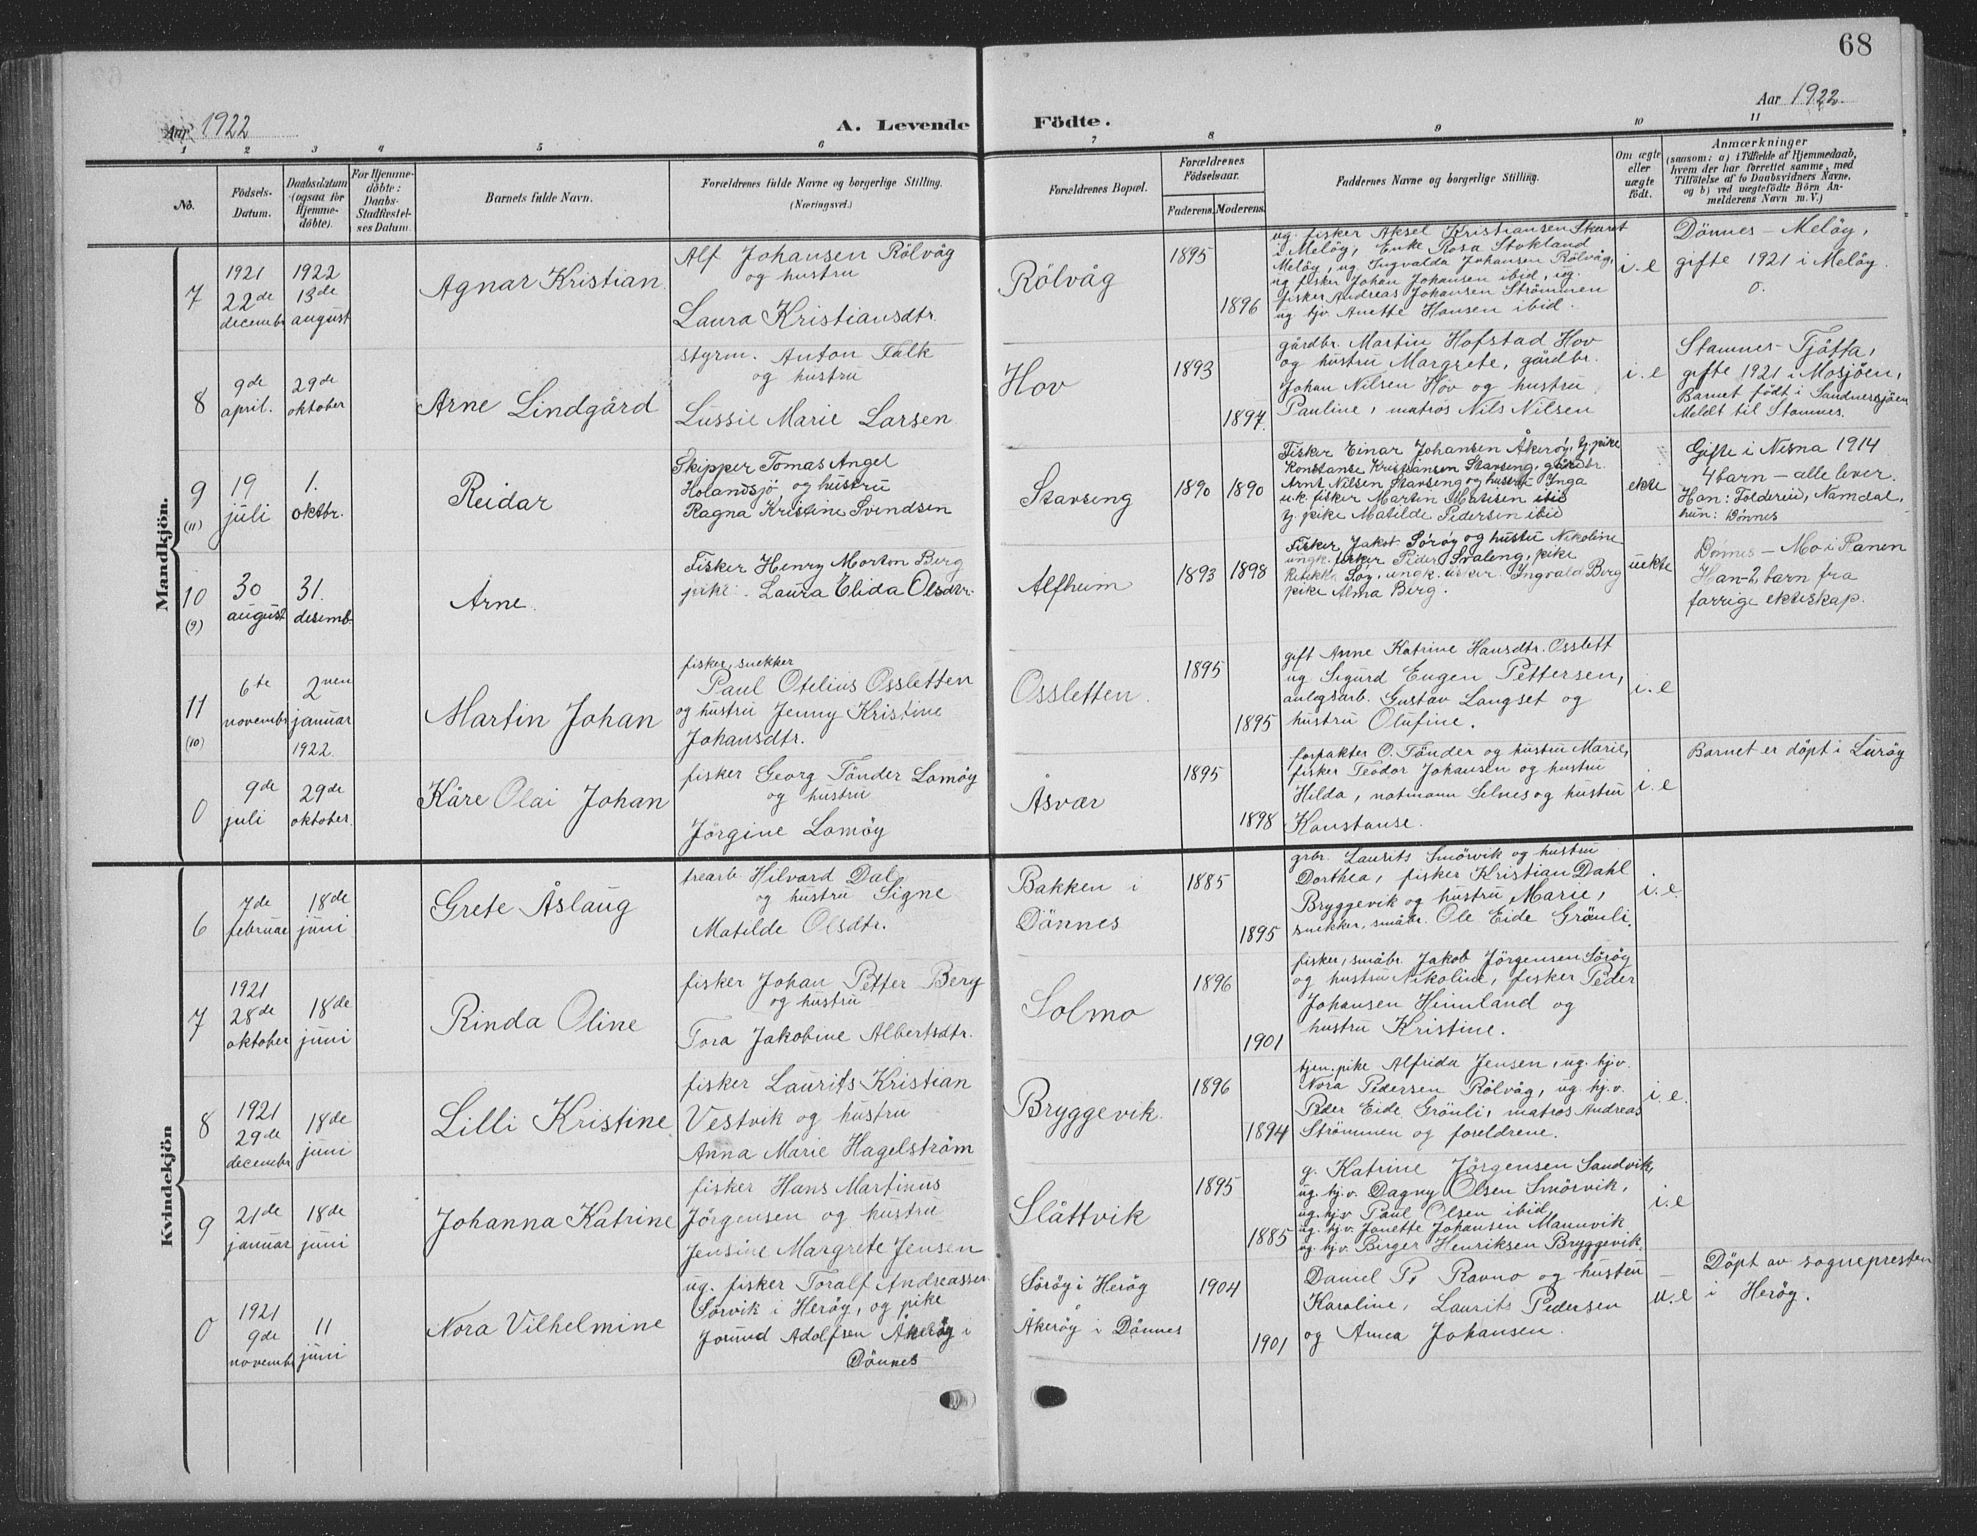 68
Aar 1922
A. Levende Födte.
Aar 1922.
1 2 3 4 5 6 7 8 9 10 11
No.
Födsels-Datum.
Daabsdatum (ogsaa for Hjemme-döbte).
For Hjemme-döbte: Daabs-Stadfæstel-ses Datum.
Barnets fulde Navn.
Forældrenes fulde Navne og borgerlige Stilling.
(Næringsvei.)
Forældrenes Bopæl.
Forældrenes Födselsaar.
Faderens. Moderens.
Faddernes Navne og borgerlige Stilling.
Om ægte eller uægte födt.
Anmærkninger
(saasom: a) i Tilfælde af Hjemmedaab,
hvem der har forrettet samme, med
Tilföielse af to Daabsvidners Navne,
og b) ved uægtefödte Börn An-
melderens Navn m. V.)
Mandkjön.
7
1921
22de
decembr
1922
13de
august
Agnar Kristian.
Alf Johansen Rölvåg
og hustru
Laura Kristiansdtr.
Rölvåg
1895
1896
ug. fisker Aksel Kristiansen Skaret
i Melöy, Enke Rosa Stokland
Melöy, ug Ingvalda Johansen Rölvåg,
ug fisker Johan Johansen ibid, ug.
fisker Andreas Johansen Strömmen
ug hjv. Anette Hansen ibid.
i. e
Dönnes – Melöy,
gifte 1921 i Melöy.
0.
8
9de
april.
29de
oktober
Arne Lindgård
styrm. Anton Falk
og hustru
Lussie Marie Larsen
Hov
1893
1897.
gårdbr. Martin Hofstad Hov
og hustru Margrete, gårdbr.
Johan Nilsen Hov og hustru
Pauline, matros Nils Nilsen
i. e
Stamnes – Tjötta,
gifte 1921 i Mosjöen,
Barnet födt i Sandnessjöen
Meldt til Stamnes.
9
(11)
19
juli
1.
oktbr.
Reidar
Skipper Tomas Angel
Holandsjö og hustru
Ragna Kristine Svendsen
Stavseng
1890 1890
Fisker Einar Johansen Åkeröy, tj. pike
Konstanse Kristiansen Stavseng, gårdbr.
Arnt Nilsen Stavseng og hustru Inga
u.k. fisker Martin Matisen ibid
tj. pike Matilde Pedersen ibid
ekte
Gifte i Nesna 1914
4 barn – alle lever.
Han: Foldereid, Namdal,
hun: Dønnes
10
(9)
30
august
31.
desemb.
Arne.
Fisker Henry Morton Berg
pike. Laura Elida Olsdtr.
Alfheim
1893 1898
Fisker Jakob Söröy og hustru Nikoline
ungk. fisker Peder Svaleng, pike
Söy, ungk. fisker Ingvald Berg
pike Alma Berg.
uekte
Dønnes – Mo i Ranen
Han – 2 barn fra
forrige ekteskap.
11
(10)
6te
novembr
2nen
januar
1922.
Martin Johan
fisker, snekker
Paul Otelius Ossletten
og hustru Jenny Kristine
Johansdtr.
Ossletten.
1895
1895
gift Anne Katrine Hansdtr. Osslett
ug Sigurd Eugen Pettersen,
anlegsarb. Gustav Langset og
hustru Olufine.
i. e
0
9de
juli
29de
oktober.
Kåre Olai Johan
fisker Georg Tönder Lamöy
og hustru
Jörgine Lamöy
Åsvær
1895
1898
forpakter O. Tönder og hustru Marie,
fisker Teodor Johansen og hustru
Hilda, Selnes og hustru
Konstanse.
i. e
Barnet er döpt i Luröy
Kvindekjön
6
7de
februar
18de
juni
Grete Åslaug
trearb. Hilvard Dal
og hustru Signe
Matilde Olsdtr.
Bakken i
Dönnes
1885
1895
grbr. Laurits Smörvik og hustru
Dorthea, fisker Kristian Dahl
Bryggevik og hustru Marie,
snekker, småbr. Ole Eide Grönli.
i. e.
7
1921
28de
oktober
18de
juni
Rinda Oline
fisker Johan Petter Berg
og hustru
Tora Jakobine Albertsdtr.
Solmo
1896
1901
fisker, småbr. Jakob Jörgensen Söröy
og hustru Nikoline, fisker Peder
Johansen Heimland og
hustru Kristine.
8
1921
29de
decembr
18de
juni
Lilli Kristine
fisker Laurits Kristian
Vestvik og hustru
Anna Marie Hagelström
Bryggevik.
1896
1894
tjen. pike Alfrida Jensen, ug. hjv.
Nora Pedersen Rölvåg, ug. hj.v.
Peder Eide Grönli, matros Andreas
Strömmen og foreldrene.
i. e.
9
21de
januar
18de
juni
Johanna Katrine
fisker Hans Martinus
Jörgensen og hustru
Jensine Margrete Jensen
Slåttvik
1895
1885
g. Katrine Jörgensen Sandvik,
ug. hj.v. Dagny Olsen Smörvik,
ug. hjv. Paul Olsen ibid,
ug. hjv. Jonette Johansen Mannvik
ug. hjv. Birger Henriksen Bryggevik.
i. e
0
1921
9de
novembr
11
juni
Nora Vilhelmine
ug. fisker Toralf Andreassen
Sörvik i Heröy, og pike
Jorund Adolfsen Åkeröy i
Dönnes
Söröy i Heröy
Åkeröy i Dönnes
1904
1901
Daniel P. Ravno og hustru
Karoline, Laurits Pedersen
og Anna Johansen.
u. e
Döpt av sognepresten
i Heröy.